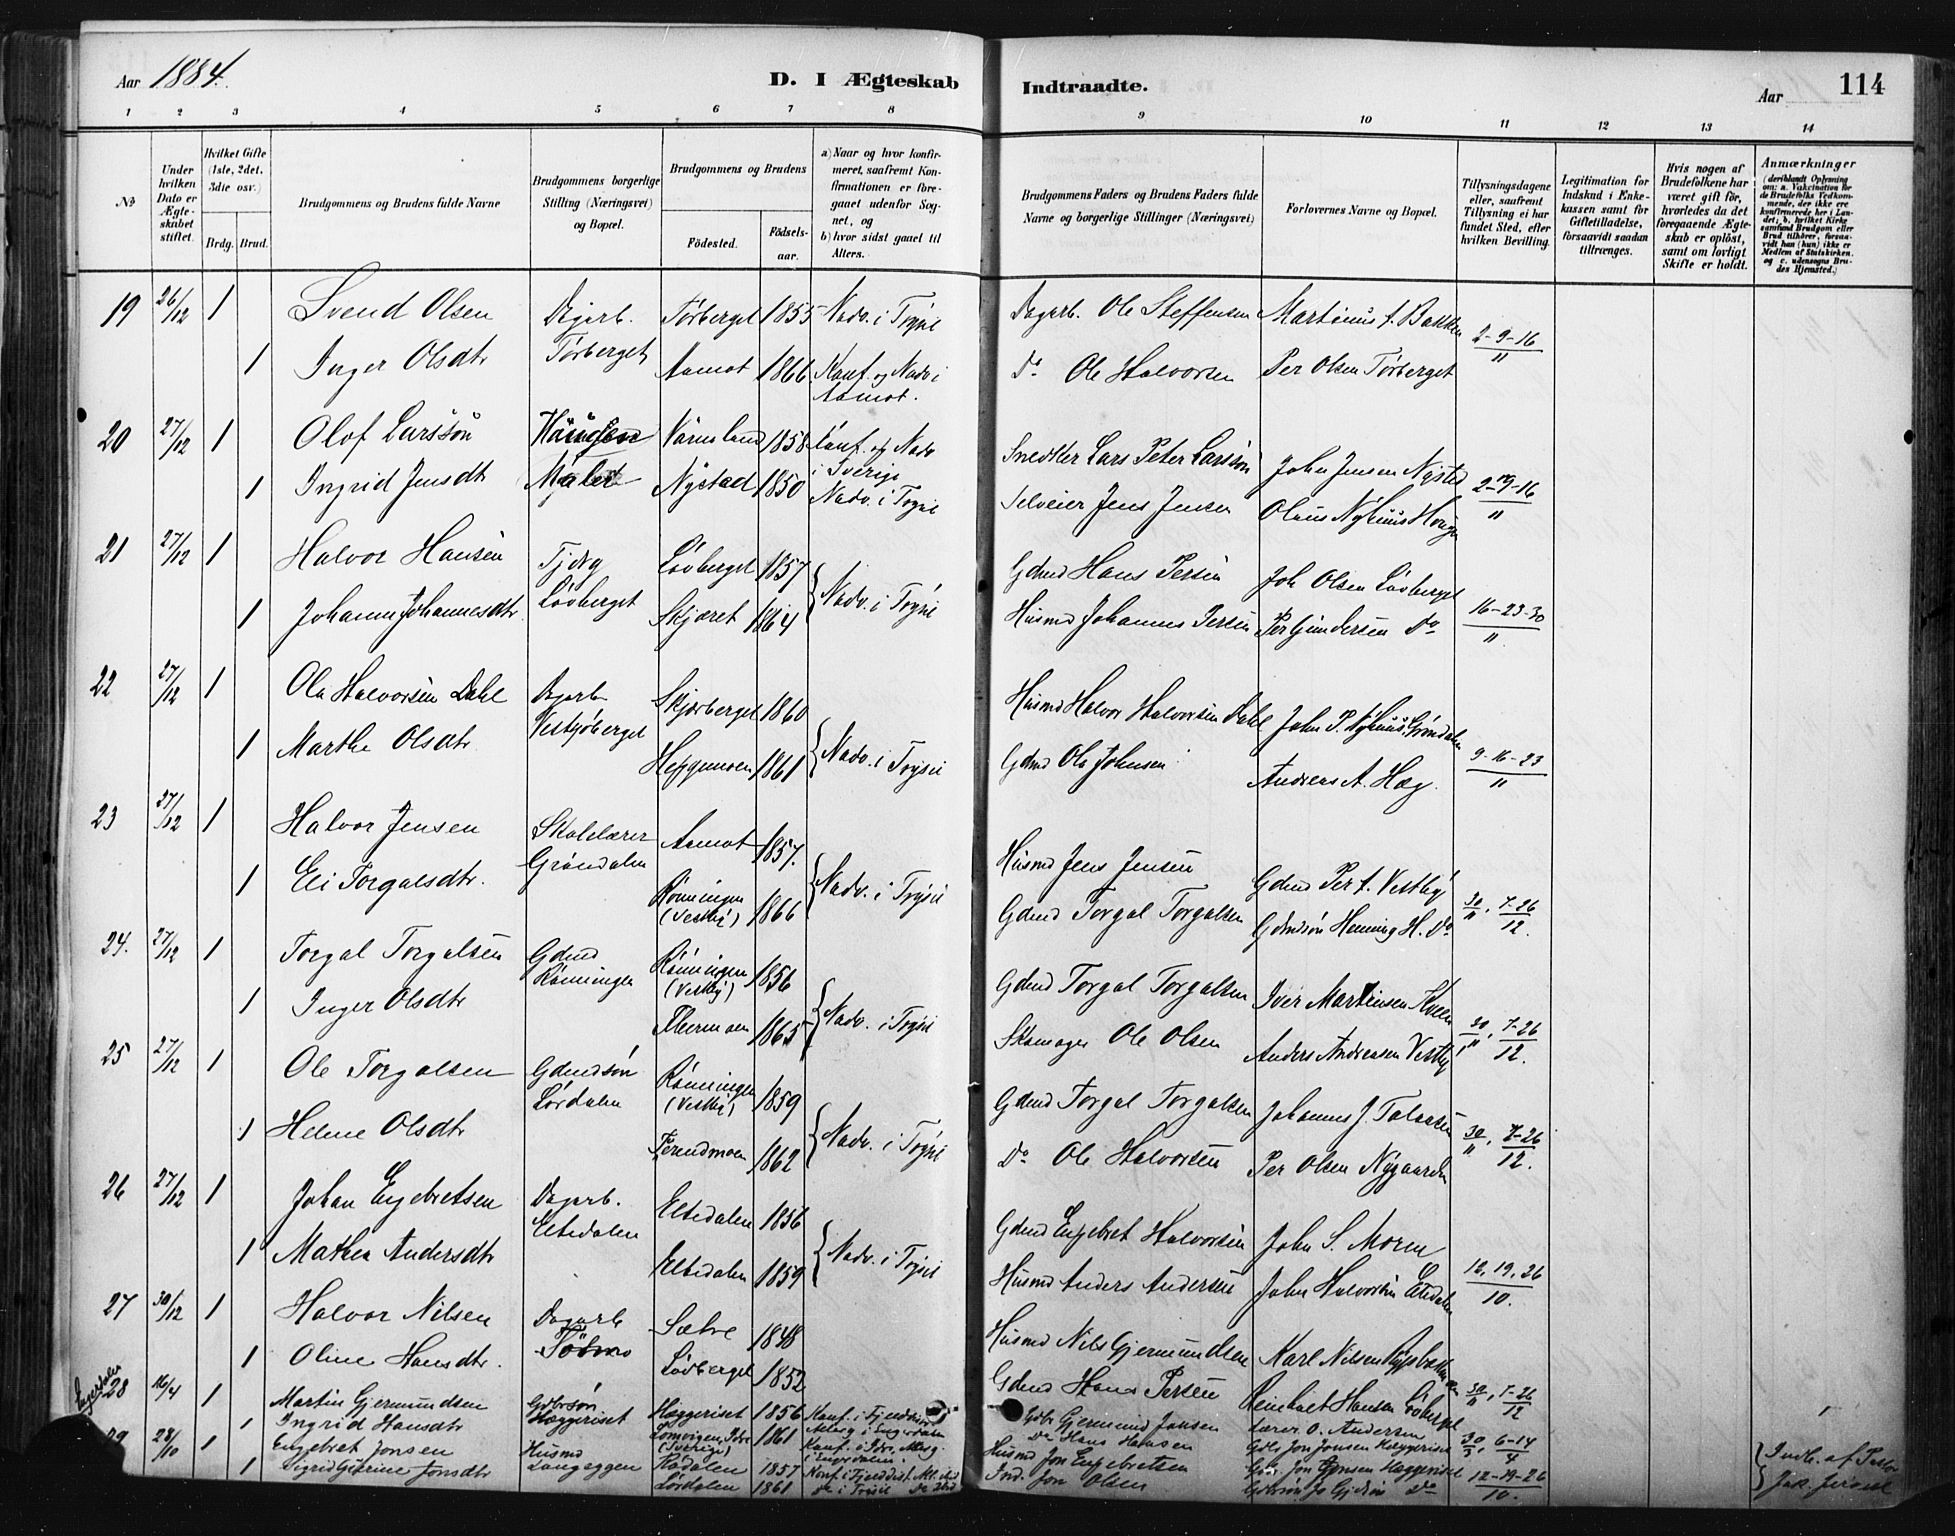 Aar 1884.
D. I Ægteskab
Indtraadte.
Aar
114
1 2 3 4 5 6 7 8 9 10 11 12 13 14
№
Under hvilken Dato er Ægteskabet stiftet.
Hvilket Gifte (1ste, 2det, 3die osv.)
Brdg. Brud.
Brudgommens og Brudens fulde Navne
Brudgommens borgerlige Stilling (Næringsvei) og Bopæl.
Brudgommens og Brudens
Fødested.
Fødselsaar.
a) Naar og hvor konfirmeret, saafremt Konfirmationen er foregaaet udenfor Sognet, og
b) hvor sidst gaaet til Alters.
Brudgommens Faders og Brudens Faders fulde Navne og borgerlige Stillinger (Næringsvei)
Forlovernes Navne og Bopæl.
Tillysningsdagene eller, saafremt Tillysning ei har fundet Sted, efter hvilken Bevilling.
Legitimation for Indskud i Enkekassen samt for Giftetilladelse, forsaavidt saadan tiltrænges.
Hvis nogen af Brudefolkene har været gift før, hvorledes da det foregaaende Ægteskab er opløst, samt om lovligt Skifte er holdt.
Anmærkninger
(deriblandt Oplysning om: a. Vakcination for de Brudefolks Vedkommende, der ikke ere konfirmerede her i Landet; b. hvilket Kirkesamfund Brudgom eller Brud tilhører, forsaavidt han (hun) ikke er Medlem af Statskirken, og c. udensogns Brudes Hjemsted.)
19 26/12 1 Svend Olsen Dagarb. Tørberget Tørberget 1855 Nadv. i Trysil Dagarb. Ole Steffensen Martinus . Bakken 2-9-16/11
1 Inger Olsdtr Aamot 1866 Konf. og Nadv i Aamot. Do Ole Halvorsen Per Olsen Tørberget
20 27/12 1 Olof Larsson Maler Värmland 1858 Konf. og Nadv i Sverige Snedker Lars Peter Larsson John Jensen Nysted 2-9-16/11
1 Ingrid Jensdtr Nystad 1850 Nadv. i Trysil Selveier Jens Jensen Olaus Nyhuus
21 27/12 1 Halvor Hansen Løvberget Løvberget 1857 Nadv. i Trysil Gdmd Hans Persen Joh Olsen Løvberget 16-23-30/11
1 Johanne Johannesdtr Skjæret 1864 Husmd Johannes Persen Per Gundersen Do
22 27/12 1 Ole Halvorsen Dahl Dagarb Vestbyberget Skjærberget 1860 Nadv. i Trysil Husmd Halvor Halvorsen Dahl John P. Nyhuus, Grøndalen 9-16-23/11
1 Marthe Olsdtr Heggemoen 1861 Gdmd Ole Johnsen Andreas A. Hæg.
23 27/12 1 Halvor Jensen Skolelærer Grøndalen Aamot 1857. Nadv. i Trysil Husmd Jens Jensen Gdmd Per . Vestby 30/11, 7-26/12.
1 Eli Torgalsdtr. Rønningen (Vestby) 1866 Gdmd Torgal Torgalsen Gdmdsøn Henning H. Do
24. 27/12 1 Torgal Torgalsen Gdmd Rønningen Rønningen (Vestby) 1856 Nadv. i Trysil Gdmd Torgal Torgalsen Iver Martinsen Kveen 30/11, 7-26/12.
1 Inger Olsdtr 1865 Skomager Ole Olsen Anders Andreasen Vestby
25 27/12 1 Ole Torgalsen Gdmdsøn Lørdalen Rønningen (Vestby) 1859 Nadv. i Trysil Gdmd Torgal Torgalsen Johannes J. 30/11, 7-26/12.
1 Helene Olsdtr 1862 Do Ole Halvorsen Per Olsen Nygaarden
26 27/12 1 Johan Engebretsen Dagarb. Eltedalen Eltedalen 1856 Nadv. i Trysil Gdmd Engebret Halvorsen John S. Moren 12, 19, 26/10.
1 Mathea Andersdtr Eltedalen 1859 Husmd Anders Andersen John Halvorsen
27 30/12 1 Halvor Nilsen Dagarb Sætre 1848 Husmd Nils Gjermundsen Karl Nilsen 30/11, 7-26/12
1 Oline Hansdtr. Løvberget 1852 Gdmd Hans Persen Reinholt Hansen Løvberget
Engerdalen
28 16/4 1 Martin Gjermundsen Gdbrsøn Hæggeriset Hæggeriset 1856 Gdbr Gjermund Jonsen Lærer O. Andersen 30/3, 6-14/4
1 Ingrid Hansdtr Idre (Sverige) 1861 Konf. i Idre Do Hans Hansen Gdbr Jon Jonsen Hæggeriset
29 28/10 1 Engebret Jonsen Husmd Langeggen 1857 Husmd Jon Engebretsen Gdbr. Jon Jonsen Hæggeriset 12-19-26/10.
1 Jonsdtr Lørdalen 1861 Do i Trysil Jon Olsen Do
Indb. af Pastor